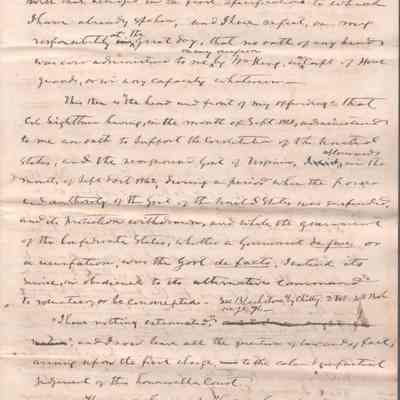 I have already spoken, and I here repeat, on my
responsibility at the great day, that no oath of any kind
on any occasion
was ever administered to me, by Wm King, as Capt. of Home
guards, or in any capacity whatsoever.
This then is the head and front of my offending: that
Col Lightburn having, in the month of Sept 1861, administered
to me an oath to support the Constitution of the United
afterwards
States, and the Govt of Virginia, in the
month of Sept 1862, during a period when the power
and authority of the Govt of the United States was suspended,
and its protection withdrawn, and while the government
of the Confederate States, whether a Government de jure or
a usurpation, was the Govt de facto, I entered its
service, in obedience to the alternative command
to volunteer or be conscripted. See Blackstone by Chitty 2 Vol. 4th Book
page
"I have nothing extenuated"
and I now leave all the question of law and of fact,
arising upon the first charge, to the calm & impartial
judgment of this honorable Court.